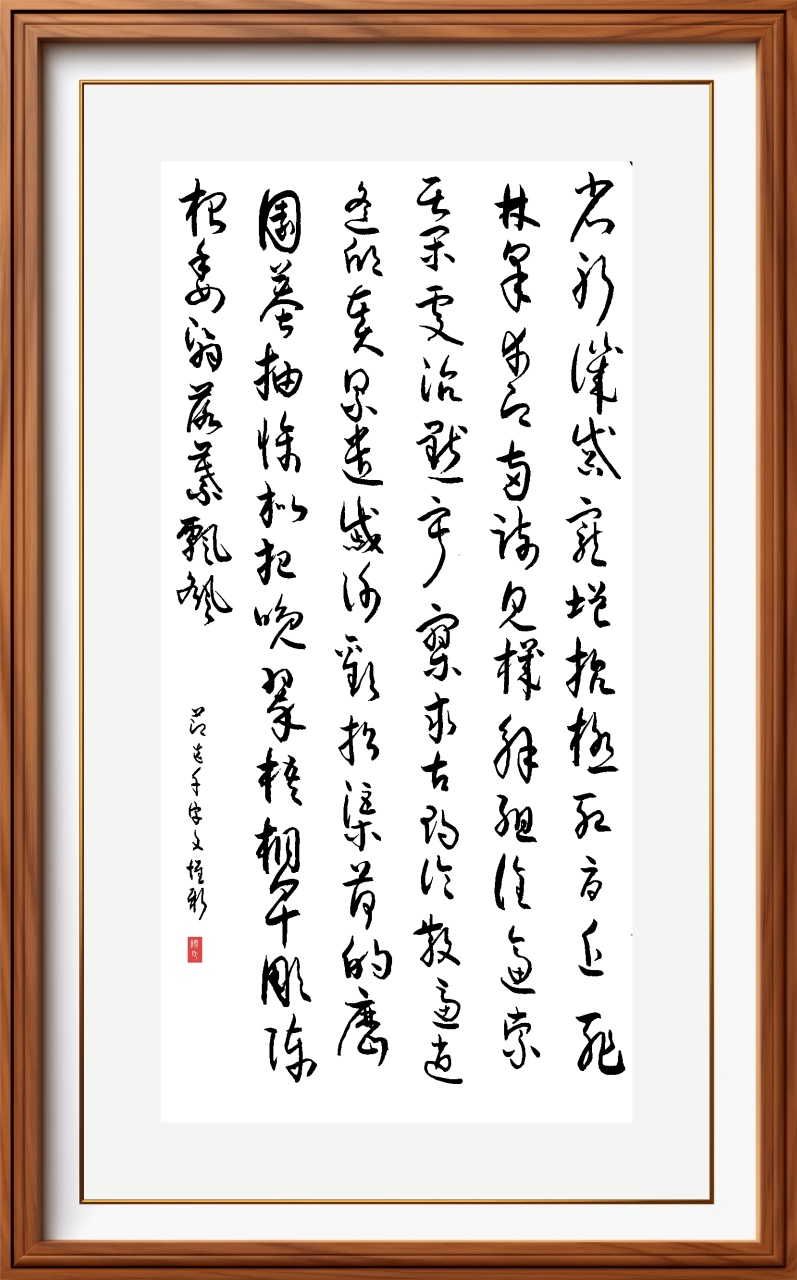 省躬譏誡寵增抗極殆辱近恥
林皋幸即兩疏見機解組誰逼索
居閑處沉默寂寥求古尋論散慮逍
遙欣奏累遣慼謝歡招渠荷的歷
園莽抽條枇杷晚翠梧桐早彫陳
根委翳落葉飄颻
节选千字文